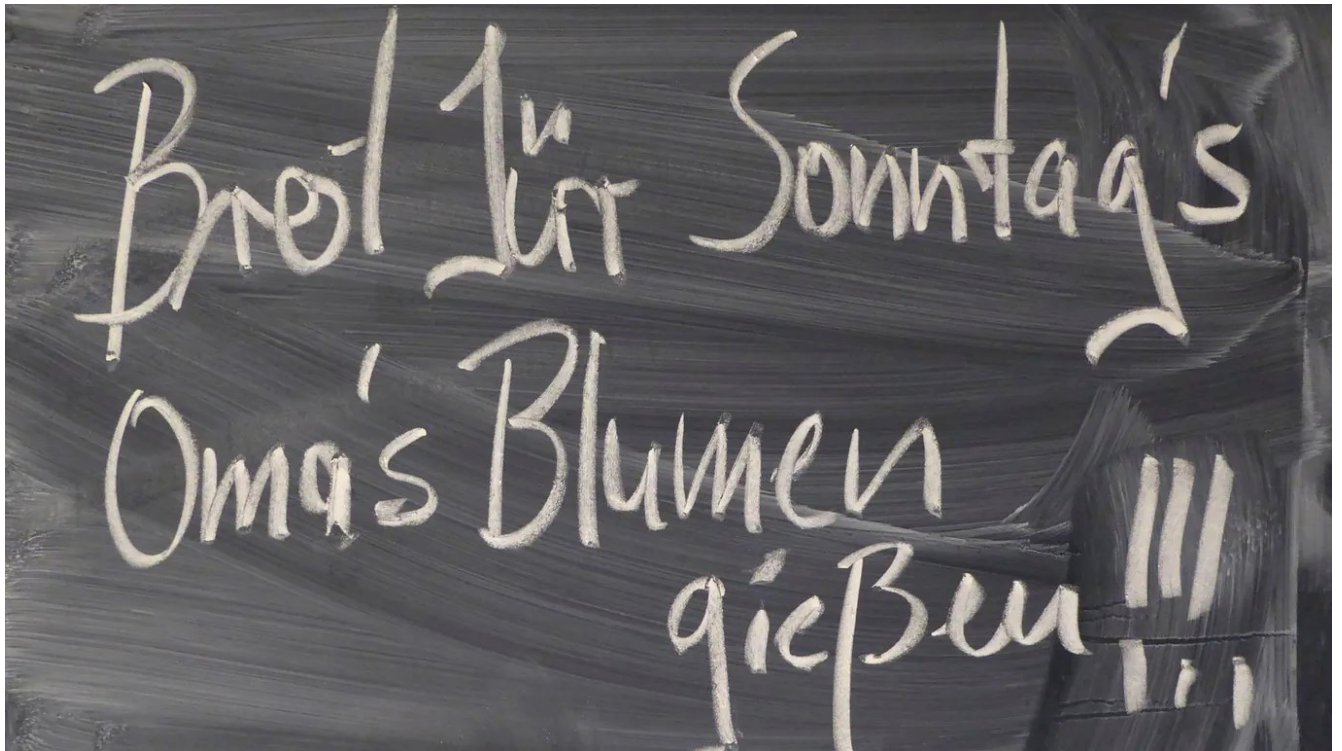 Brot für Sonntag's
Oma's Blumen
gießen!!!